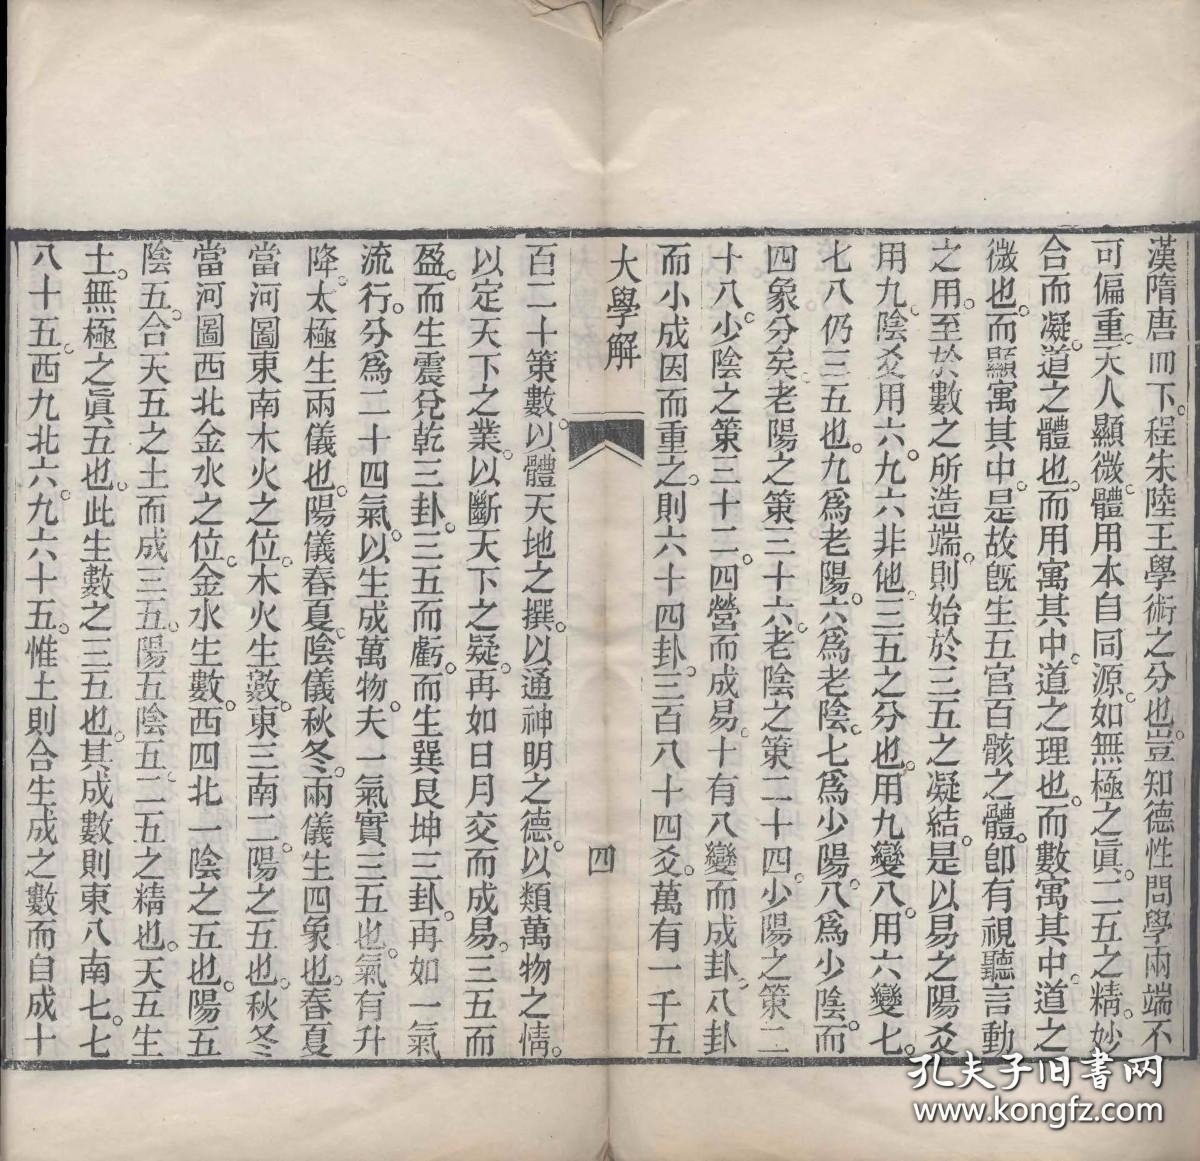 漢隋唐而下。程朱陸王學術之分也。豈知德性問學兩端不
可偏重。天人顯微。體用本自同源。如無極之眞。二五之精。妙
合而凝。道之體也。而用寓其中。道之理也。而數寓其中。道之
微也。而顯寓其中。是故旣生五官百骸之體。卽有視聽言動
之用。至於數之所造端。則始於三五之凝結。是以易之陽爻
用九。陰爻用六。九六非他。三五之分也。用九變八。用六變七。
七八仍三五也。九爲老陽。六爲老陰。七爲少陽。八爲少陰。而
四象分矣。老陽之策三十六。老陰之策二十四。少陽之策二
十八。少陰之策三十二。四營而成易。十有八變而成卦。八卦
而小成。因而重之。則六十四卦。三百八十四爻。萬有一千五
大學解
四
百二十策數。以體天地之撰。以通神明之德。以類萬物之情。
以定天下之業。以斷天下之疑。再如日月交而成易。三五而
盈。而生震兌乾三卦。三五而虧。而生巽艮坤三卦。再如一氣
流行。分爲二十四氣。以生成萬物。夫一氣實三五也。氣有升
降。太極生兩儀也。陽儀春夏。陰儀秋冬。兩儀生四象也。春夏
當河圖東南木火之位。木火生數。東三南二。陽之五也。秋冬
當河圖西北金水之位。金水生數。西四北一。陰之五也。陽五
陰五。合天五之土而成三五。陽五陰五。二五之精也。天五生
土。無極之眞五也。此生數之三五也。其成數則東八南七。七
八十五。西九北六。九六十五。惟土則合生成之數而自成十
孔夫子旧书网
www.kongfz.com